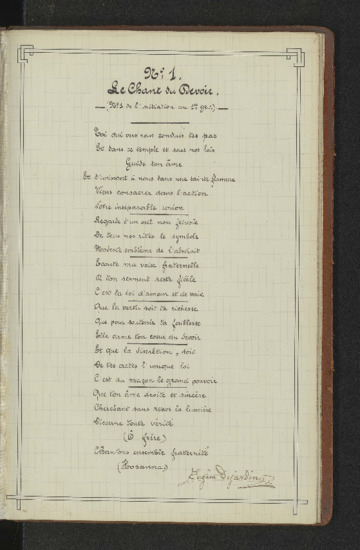 N° 1.
Le Chant du Devoir.
(N° 1 de l'initiation au 1er gr∴)
Toi qui vers nous conduis tes pas
Et dans ce temple et sous nos lois
Guide ton âme
Et t'unissant à nous dans une
Viens consacrer dans l'action
Notre inséparable union
Regarde d'un œil
De tous nos rites le symbole
emblème de l'abstrait
Écoute ma voix fraternelle
À ton serment reste fidèle
C'est la loi d'amour et de paix
Que la vertu soit ta richesse
Que pour soutenir ta faiblesse
Elle arme ton cœur du devoir
Et que la discrétion, soit
De tes actes l'unique loi
C'est du maçon le grand pouvoir
Que ton âme droite et sincère
Cherchant sans cesse la lumière
Discerne toute vérité
(Ô frère)
Chantons ensemble fraternité
(Hosanna)
Eugène Dejardin